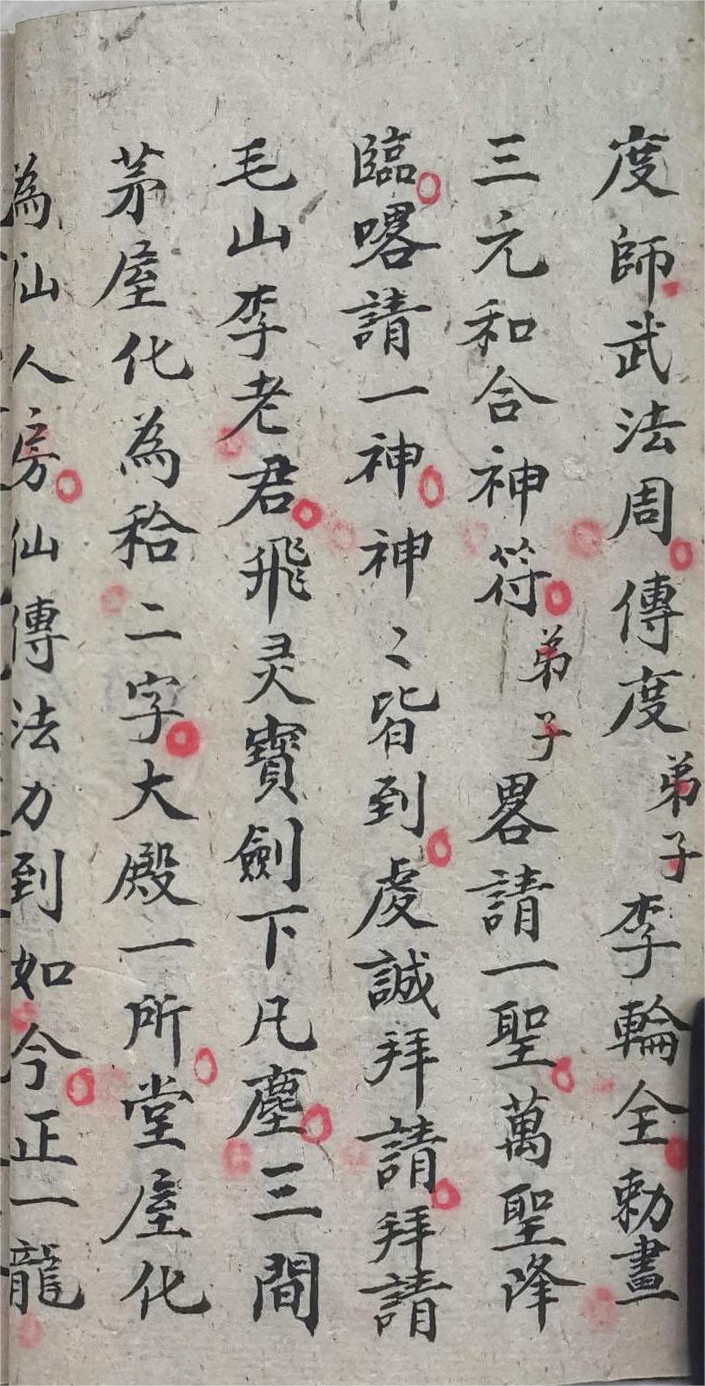 度師武法周傳度弟子李輪全勅畫
三元和合神符弟子畧請一聖萬聖降
臨喀請一神神〻皆到虔誠拜請拜請
毛山李老君飛灵寳劍下凡塵三間
茅屋化為秴二字大殿一所堂屋化
為仙人房仙傳法力到如今正一龍